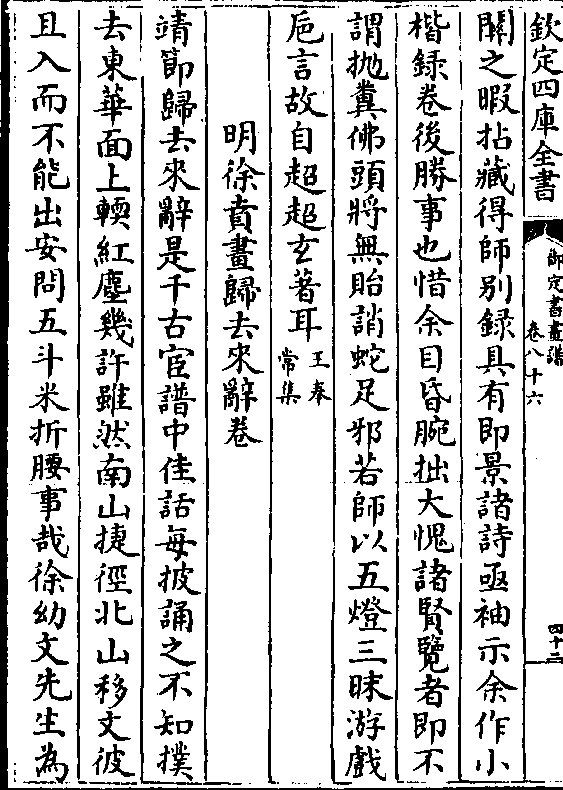 欽定四庫全書
御定書畫譜
卷八十六
四十二
關之暇拈藏得師别録具有即景諸詩亟袖示余作小
楷録卷後勝事也惜余目昏腕拙大愧諸賢覽者即不
謂抛糞佛頭將無貽誚蛇足邪若師以五燈三昧游戲
巵言故自超超玄著耳王奉
常集
明徐賁畫歸去來辭卷
靖節歸去來辭是千古宦譜中佳話每披誦之不知撲
去東華面上輭紅塵幾許雖然南山捷徑北山移文彼
且入而不能出安問五斗米折腰事哉徐幼文先生為